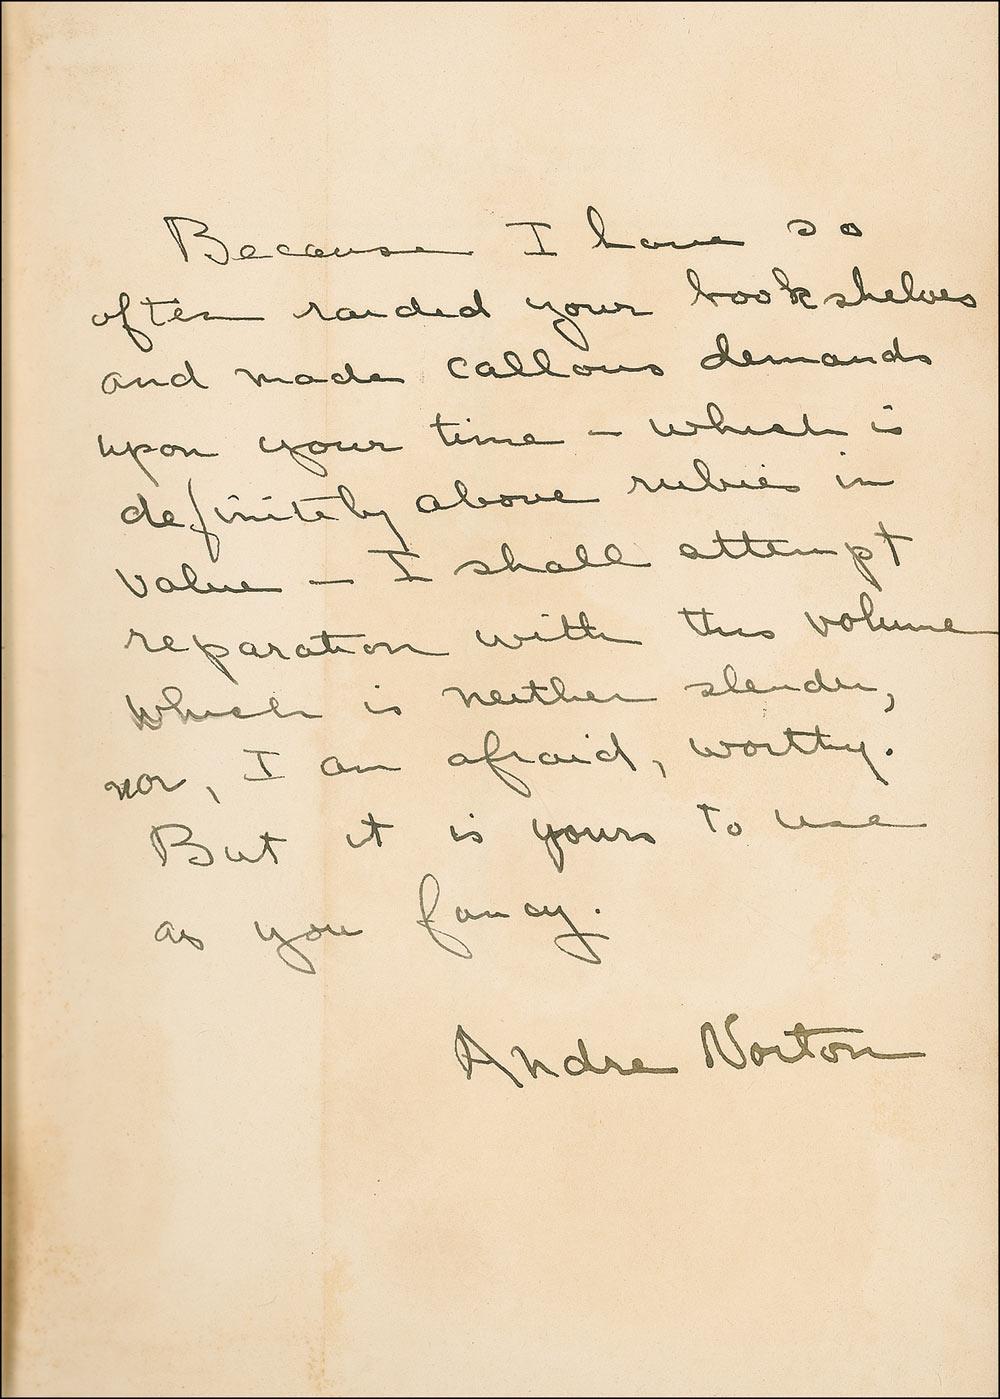 Because I have so
often raided your bookshelves
and made callous demands
upon your time – which is
definitely above rubies in
value – I shall attempt
reparation with this volume
which is neither slender,
nor, I am afraid, worthy.
But it is yours to use
as you fancy.
Andre Norton